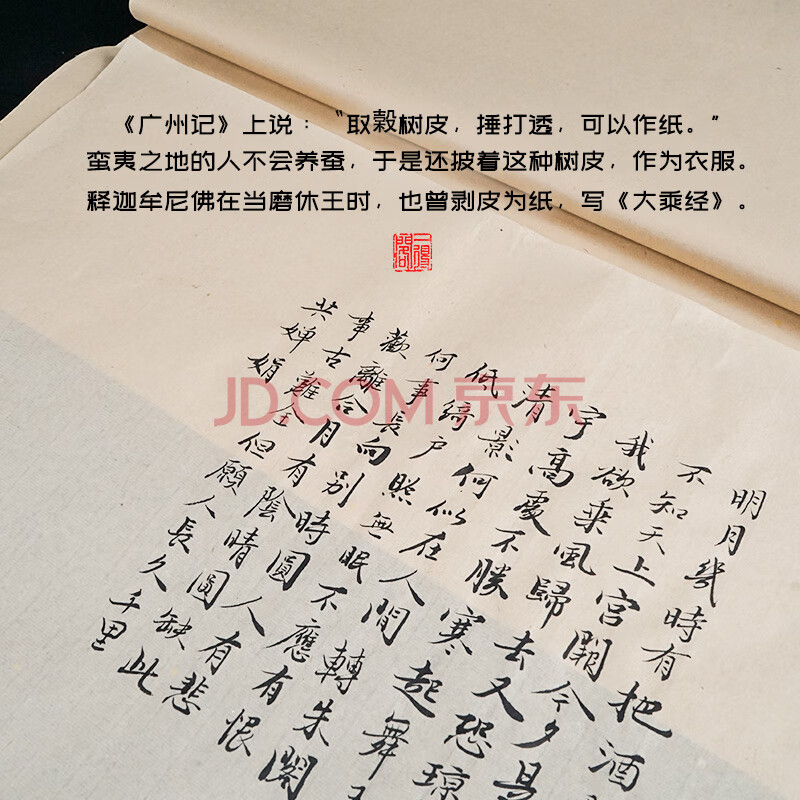 《广州记》上说：“取榖树皮，捶打透，可以作纸。”
蛮夷之地的人不会养蚕，于是还披着这种树皮，作为衣服。
释迦牟尼佛在当磨休王时，也曾剥皮为纸，写《大乘经》。
JD.COM 京东
明月幾時有把酒
不知天上宮闕今夕是
我欲乘風歸去又恐瓊
宇高處不勝寒起舞
清影何似在人間轉朱閣
低綺戶照無眠不應有恨
何事長向別時圓人有悲
歡離合月有陰晴圓缺此
事古難全但願人長久千里
共嬋娟